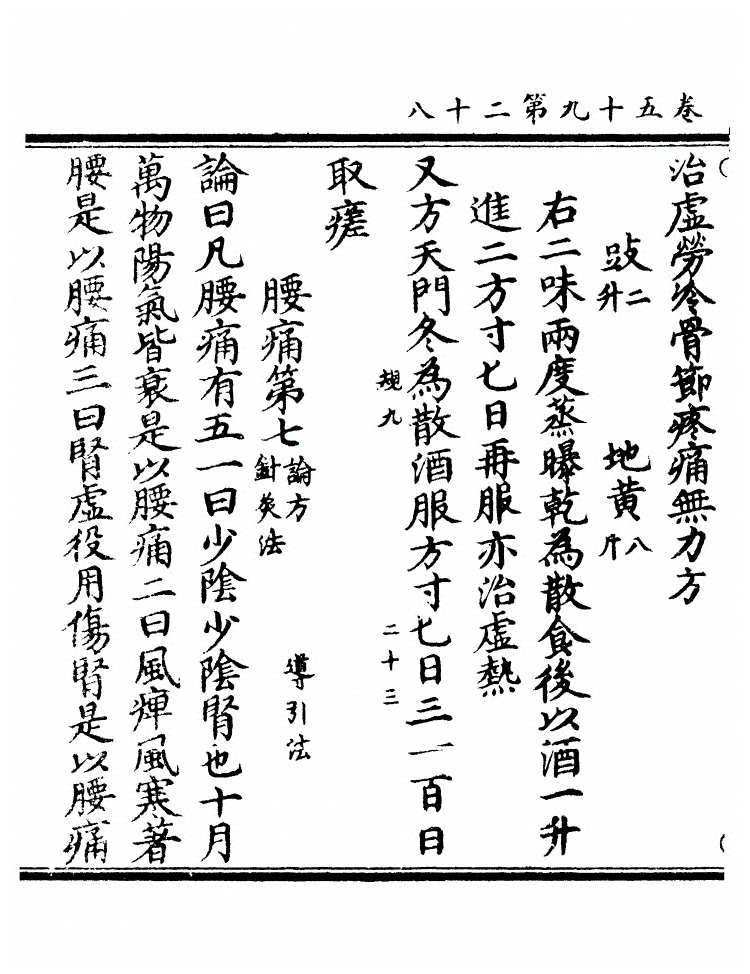 卷五十九第二十八
治虛勞冷骨節疼痛無力方
豉二升 地黃八斤
右二味兩度蒸曝乾為散食後以酒一升
進二方寸七日再服亦治虛熱
又方天門冬為散酒服方寸七日三一百日
規九 二十三
取瘥
腰痛第七 論方 導引法 針灸法
論曰凡腰痛有五一曰少陰少陰腎也十月
萬物陽氣皆衰是以腰痛二曰風痺風寒著
腰是以腰痛三曰腎虛役用傷腎是以腰痛